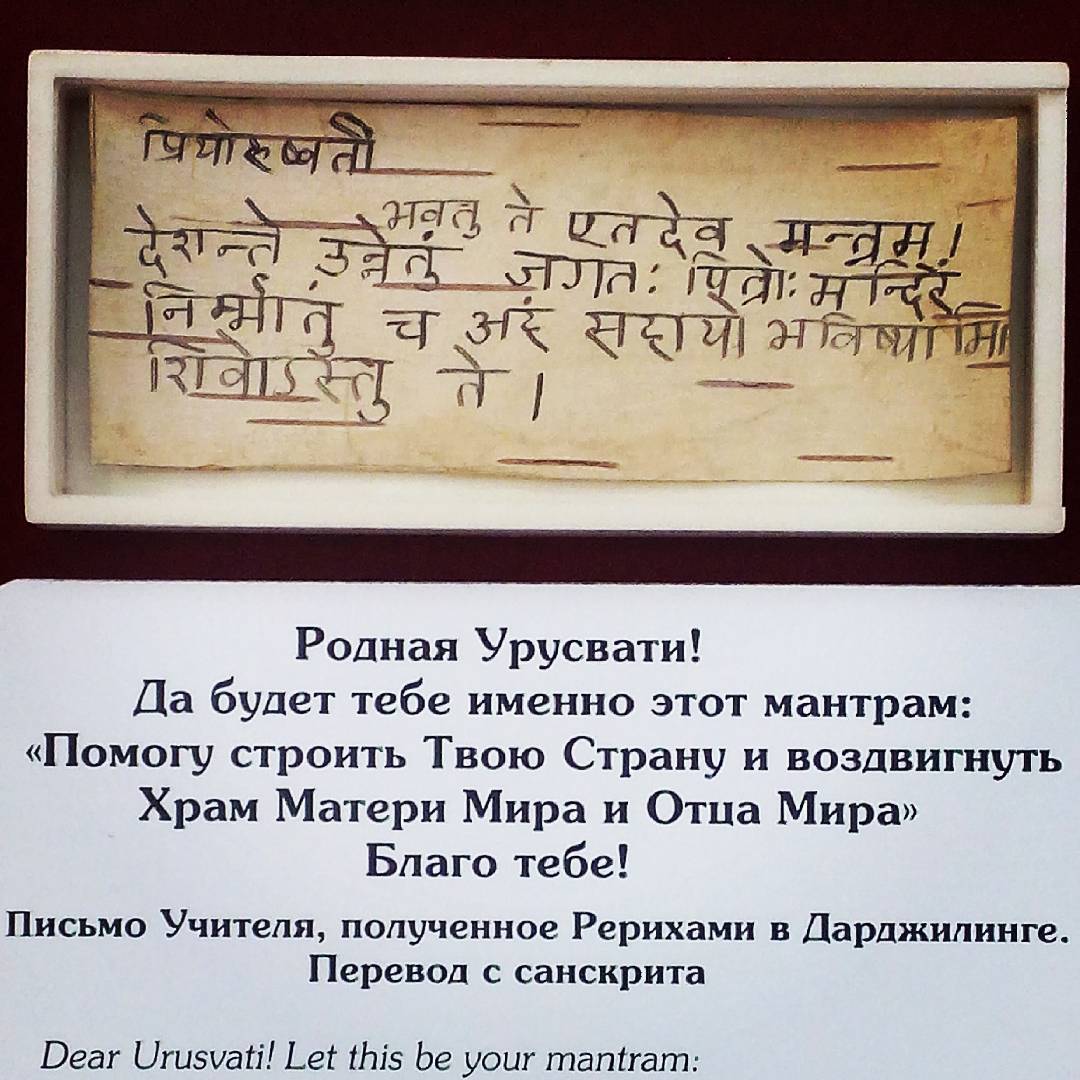 प्रियोरुष्वती
भवतु ते एतदेव मन्त्रम।
देशन्ते उन्नेतुं जगतः पित्रोः मन्दिरं
निर्म्मातुं च अहं सहायो भविष्यामि
शिवोऽस्तु ते ।
Родная Урусвати!
Да будет тебе именно этот мантрам:
«Помогу строить Твою Страну и воздвигнуть
Храм Матери Мира и Отца Мира»
Благо тебе!
Письмо Учителя, полученное Рерихами в Дарджилинге.
Перевод с санскрита
Dear Urusvati! Let this be your mantram: